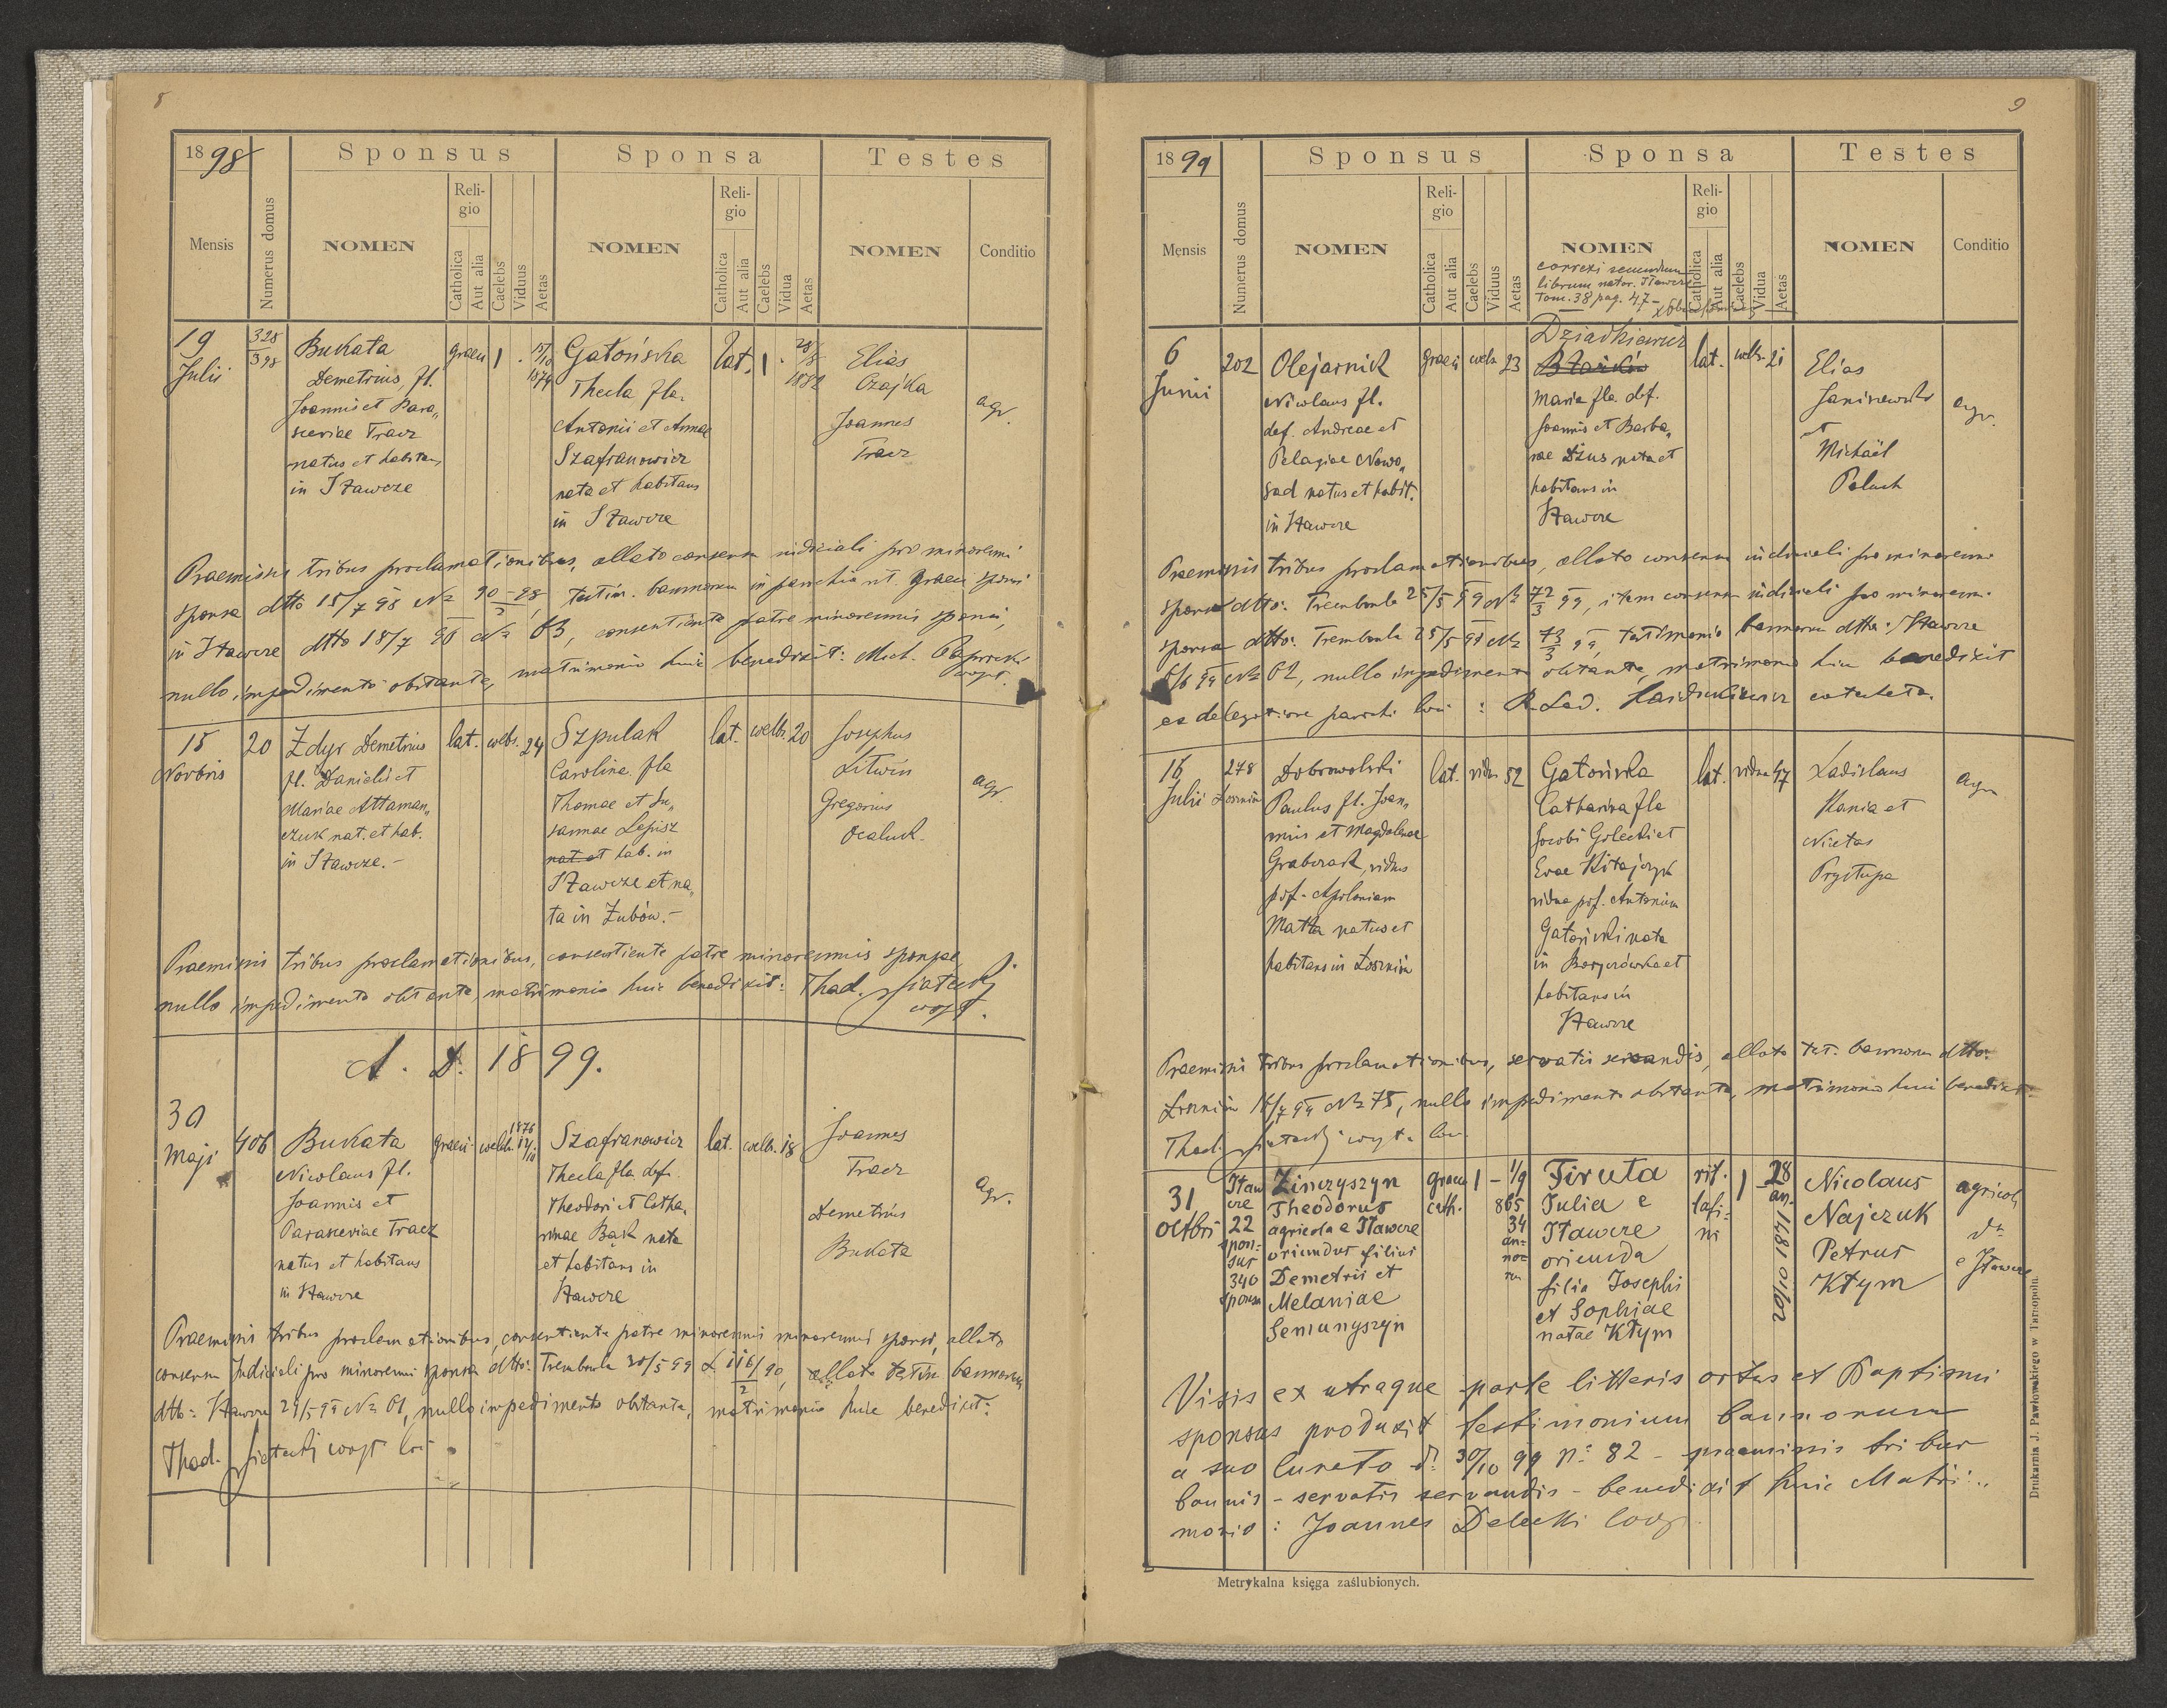 8
1898
Mensis
Numerus domus
Sponsus
NOMEN
Religio
Catholica
Aut alia
Caelebs
Viduus
Aetas
Sponsa
NOMEN
Religio
Catholica
Aut alia
Caelebs
Vidua
Aetas
Testes
NOMEN
Conditio
19
Julii
328
398
Bukata
Demetrius, fl.
Joannis et Para„
sceviae Tracz
natus et habitans
in Stawcze
graeci
1
15/10
1874
Gatońska
Thecla fla.
Antonii et Annae
Szafranowicz
nata et habitans
in Stawcze
lat.
1
28/8
1882
Elias
Czajka
Joannes
Tracz
agr.
Praemissis tribus proclamationibus, allato consensu iudiciali pro minorenni
sponsa dtto 15/7 98 No 90-98/2, testim. bannorum in parochia rit. graeci sponsi
in Stawcze dtto 18/7 98 No 63, consentiente patre minorennis sponsi,
nullo impedimento obstante, matrimonio huic benedixit: Mich.
15
Novbris
20
Zdyr Demetrius
fl. Danielis et
Mariae Attaman„
czuk nat. et hab.
in Stawcze.-
lat.
caelbs.
24
Szpulak
Carolina fla
Thomae et Su„
sannae Lepisz
nat. et hab. in
Stawcze et na„
ta in Zubów.-
lat.
caelb.
20
Josephus
Litwin
Gregorius
Ocaluk.
agr.
Praemissis tribus proclamationibus, consentiente patre minorennis sponsae,
nullo impedimento obstante, matrimonio huic benedixit: Thad.
A. D. 1899.
30
Maji
406
Bukata
Nicolaus fl.
Joannis et
Parasceviae Tracz
natus et habitans
in Stawcze
graeci
caelb.
1876
14/10
Szafranowicz
Thecla fla def.
Theodori et Catha„
rinae Bąk nata
et habitans in
Stawcze
lat.
caelb.
18
Joannes
Tracz
Demetrius
Bukata
agr.
Praemissis tribus proclamationibus, consentiente patre minorennis minorennis sponsi, allato
consensu Judiciali pro minorenni sponsa dtto: Trembowla 30/5 99 L 116/2 90, allato testim. bannorum
dtto: Stawcze 29/5 99 No 61, nullo impedimento obstante, matrimonio huic benedixit:
Thad.
9
1899
Mensis
Numerus domus
Sponsus
NOMEN
Religio
Catholica
Aut alia
Caelebs
Viduus
Aetas
Sponsa
NOMEN
correxi secundum
librum nator. Stawcze
Tom. 38 pag. 47-
Religio
Catholica
Aut alia
Caelebs
Vidua
Aetas
Testes
NOMEN
Conditio
6
Junii
202
Olejarnik
Nicolaus fl.
def. Andreae et
Pelagiae Nowo„
sad natus et habit.
in Stawcze
graeci
caelb.
23
Dziadkiewicz
Maria fla def.
Joannis et Barba„
rae Dzus nata et
habitans in
Stawcze
lat.
caelb.
21
Elias
Janiszewski
et
Michaël
Paluch
agr.
Praemissis tribus proclamationibus, allato consensu iudiciali pro minorenni
sponso dtto: Trembowla 25/5 99 No 72/3 99, item consensu iudiciali pro minorenni
sponsa dtto: Trembowla 25/5 99 No 73/3 99, testimonio bannorum dtto: Stawcze
6/6 99 No 62, nullo impedimento obstante, matrimonio huic benedixit
ex delegatione parochi loci : R. Lad. catecheta.
16
Julii
278
Łoszniów
Dobrowolski
Paulus fl. Joan„
nnis et Magdalenae
Grabczak, viduus
p. def. Apoloniam
Matta natus et
habitans in Łoszniów
lat.
viduus
52
Gatońska
Catharina fla
Jacobi Golecki et
Evae Kitajczyk
vidua p. def. Antonium
Gatoński nata
in Boryczówka et
habitans in
Stawcze
lat.
vidua
47
Ladislaus
Kania et
Nicetas
Prystupa
agr.
Praemissis tribus proclamationibus, servatis servandis, allato test. bannorum dtto:
Łoszniów 16/7 99 No 75, nullo impedimento obstante, matrimonio huic benedixit:
Thad.
31
Octbri
Staw
cze
22
spon-
sus
340
sponsa
Zinczyszyn
Theodorus
agricola e Stawcze
oriundus filius
Demetrii et
Melaniae
Semunyszyn
graeco
cath.
1
-
1/9
865
34
an-
no-
ru
Tiruta
Julia e
Stawcze
oriunda
filia Josephi
et Sophiae
natae Kłym
rit.
lati-
ni
1
28
an.
20/10 1871
Nicolaus
Najczuk
Petrus
Kłym
agricol.
dto
e Stawcze
Visis ex utraque parte litteris ortus et Baptismi
sponsus produxit testimonium bannorum
a suo Curato d: 30/10 99 No: 82 - praemissis tribus
bannis - servatis servandis - benedixit huic Matri-
monio : Joannes Delecki coop.
Metrykalna księga zaślubionych.
Drukarnia J. Pawłowskiego w Tarnopolu.